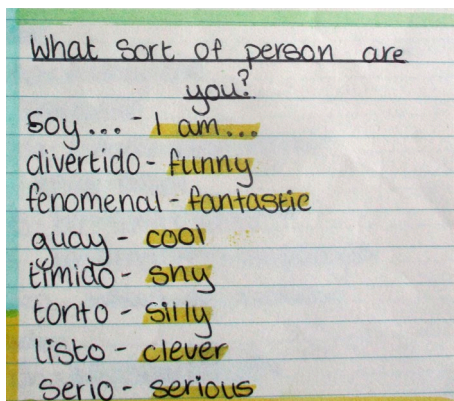 What sort of person are
you?
soy... - I am...
divertido - funny
fenomenal - fantastic
guay - cool
tímido - shy
tonto - silly
listo - clever
serio - serious